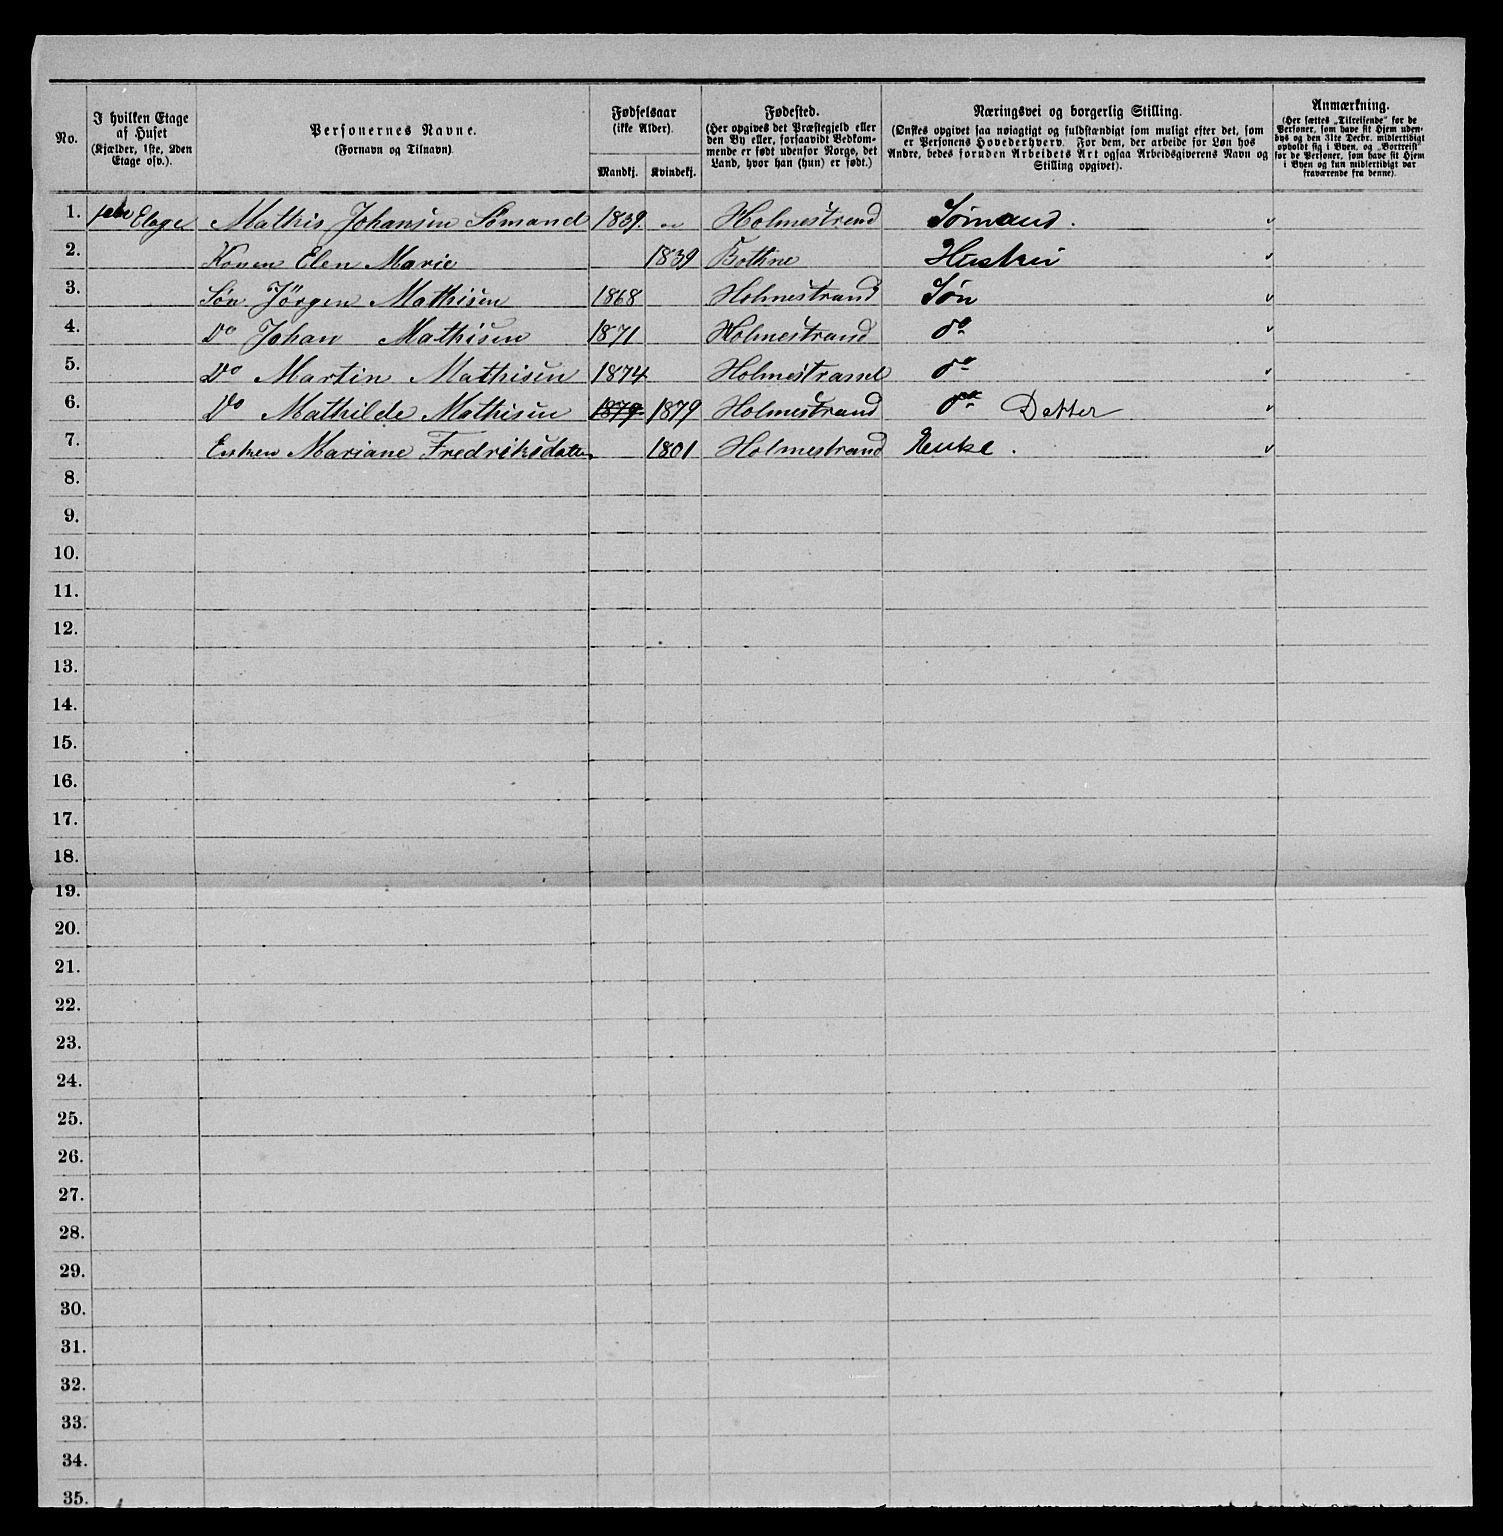 No.
I hvilken Etage
af Huset
(Kjælder, 1ste, 2den
Etage osv.).
Personernes Navne.
(Fornavn og Tilnavn)
Fødselsaar
(ikke Alder).
Mandkj. Kvindekj.
Fødested.
(Her opgives det Præstegjeld eller
den By eller, forsaavidt Vedkom-
mende er født udenfor Norge, det
Land, hvor han (hun) er født.)
Næringsvei og borgerlig Stilling.
(Ønskes opgivet saa nøiagtigt og fuldstændigt som muligt efter det, som
er Personens Hovederhverv. For dem, der arbeide for Løn hos
Andre, bedes foruden Arbeidets Art ogsaa Arbeidsgiverens Navn og
Stilling opgivet).
Anmærkning.
(Her sættes „Tilreisende“ for de
Personer, som have sit Hjem uden-
bys og den 31te Decbr. midlertidigt
opholdt sig i Byen, og „Bortreist“
for de Personer, som have sit Hjem
i Byen og kun midlertidigt var
fraværende fra denne).
1. 1ste Etage Mathis Johansen Sömand 1839. „ Holmestrend Sömand.
2. Konen Elen Marie 1839 Bothne Hustru
3. Søn Jörgen Mathisen 1868 Holmestrand Søn
4. Do Johan Mathisen 1871 Holmestrand do
5. Do Martin Mathisen 1874 Holmestrand do
6. Do Mathilde Mathisen 1879 1879 Holmestrand do Datter
7. Enken Mariane Fredriksdatter 1801 Holmestrand Enke.
8.
9.
10.
11.
12.
13.
14.
15.
16.
17.
18.
19.
20.
21.
22.
23.
24.
25.
26.
27.
28.
29.
30.
31.
32.
33.
34.
35.